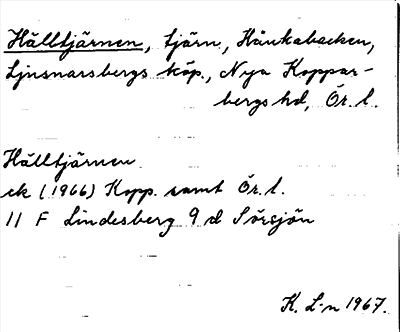 Hälltjärnen, tjärn, Hånkabacken,
Ljusnarsbergs köp., Nya Koppar-
bergs hd, Ör. l.
Hälltjärnen
ek (1966) Kopp. samt Ör. l.
11 F Lindesberg 9 d Sörsjön
K. L-n 1967.